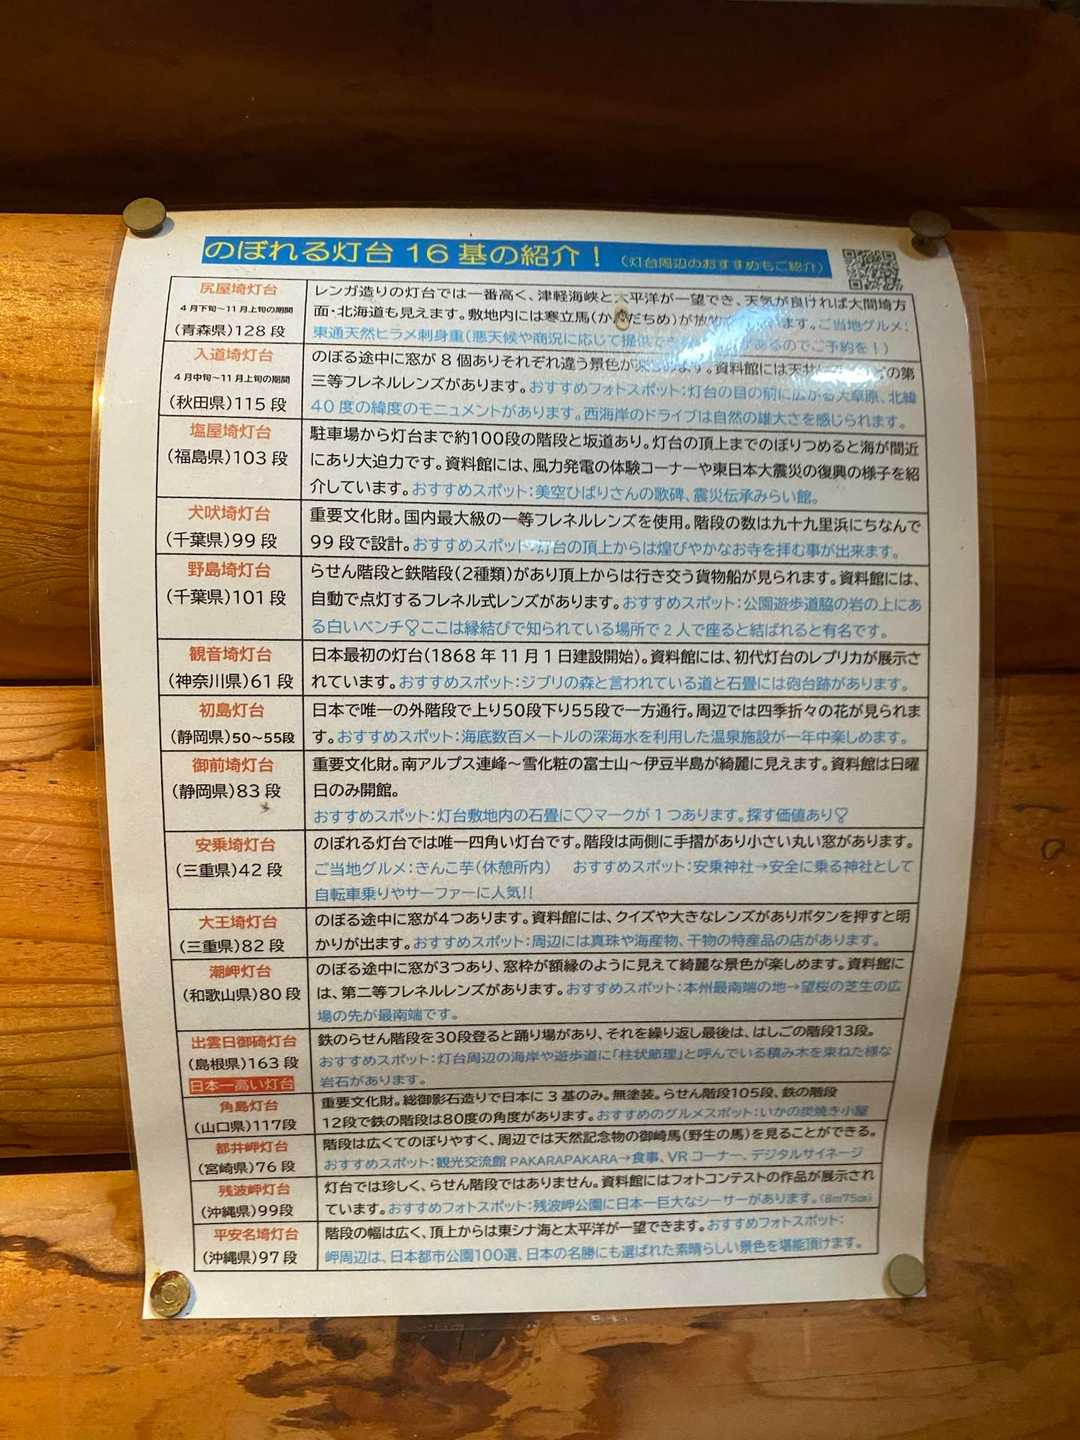 のぼれる灯台16基の紹介！（灯台周辺のおすすめもご紹介）
尻屋埼灯台
4月下旬～11月上旬の期間
(青森県)128段
レンガ造りの灯台では一番高く、津軽海峡と太平洋が一望でき、天気が良ければ大間埼方
面・北海道も見えます。敷地内には寒立馬(かんだちめ)が放牧 ます。ご当地グルメ：
東通天然ヒラメ刺身重(悪天候や商況に応じて提供でき があるのでご予約を！)
入道埼灯台
4月中旬～11月上旬の期間
(秋田県)115段
のぼる途中に窓が8個ありそれぞれ違う景色が楽しめます。資料館には天井 の第
三等フレネルレンズがあります。おすすめフォトスポット：灯台の目の前に広がる大草原、北緯
40度の緯度のモニュメントがあります。西海岸のドライブは自然の雄大さを感じられます。
塩屋埼灯台
(福島県)103段
駐車場から灯台まで約100段の階段と坂道あり。灯台の頂上までのぼりつめると海が間近
にあり大迫力です。資料館には、風力発電の体験コーナーや東日本大震災の復興の様子を紹
介しています。おすすめスポット：美空ひばりさんの歌碑、震災伝承みらい館。
犬吠埼灯台
(千葉県)99段
重要文化財。国内最大級の一等フレネルレンズを使用。階段の数は九十九里浜にちなんで
99段で設計。おすすめスポット：灯台の頂上からは煌びやかなお寺を拝む事が出来ます。
野島埼灯台
(千葉県)101段
らせん階段と鉄階段(2種類)があり頂上からは行き交う貨物船が見られます。資料館には、
自動で点灯するフレネル式レンズがあります。おすすめスポット：公園遊歩道脇の岩の上にあ
る白いベンチ♡ここは縁結びで知られている場所で2人で座ると結ばれると有名です。
観音埼灯台
(神奈川県)61段
日本最初の灯台(1868年11月1日建設開始)。資料館には、初代灯台のレプリカが展示さ
れています。おすすめスポット：ジブリの森と言われている道と石畳には砲台跡があります。
初島灯台
(静岡県)50～55段
日本で唯一の外階段で上り50段下り55段で一方通行。周辺では四季折々の花が見られま
す。おすすめスポット：海底数百メートルの深海水を利用した温泉施設が一年中楽しめます。
御前埼灯台
(静岡県)83段
重要文化財。南アルプス連峰～雪化粧の富士山～伊豆半島が綺麗に見えます。資料館は日曜
日のみ開館。
おすすめスポット：灯台敷地内の石畳に♡マークが1つあります。探す価値あり♡
安乗埼灯台
(三重県)42段
のぼれる灯台では唯一四角い灯台です。階段は両側に手摺があり小さい丸い窓があります。
ご当地グルメ：きんこ芋(休憩所内)　おすすめスポット：安乗神社→安全に乗る神社として
自転車乗りやサーファーに人気!!
大王埼灯台
(三重県)82段
のぼる途中に窓が4つあります。資料館には、クイズや大きなレンズがありボタンを押すと明
かりが出ます。おすすめスポット：周辺には真珠や海産物、干物の特産品の店があります。
潮岬灯台
(和歌山県)80段
のぼる途中に窓が3つあり、窓枠が額縁のように見えて綺麗な景色が楽しめます。資料館に
は、第二等フレネルレンズがあります。おすすめスポット：本州最南端の地→望桜の芝生の広
場の先が最南端です。
出雲日御碕灯台
(島根県)163段
日本一高い灯台
鉄のらせん階段を30段登ると踊り場があり、それを繰り返し最後は、はしごの階段13段。
おすすめスポット：灯台周辺の海岸や遊歩道に「柱状節理」と呼んでいる積み木を束ねた様な
岩石があります。
角島灯台
(山口県)117段
重要文化財。総御影石造りで日本に3基のみ。無塗装。らせん階段105段、鉄の階段
12段で鉄の階段は80度の角度があります。おすすめのグルメスポット：いかの炭焼き小屋
都井岬灯台
(宮崎県)76段
階段は広くてのぼりやすく、周辺では天然記念物の御崎馬(野生の馬)を見ることができる。
おすすめスポット：観光交流館PAKARAPAKARA→食事、VRコーナー、デジタルサイネージ
残波岬灯台
(沖縄県)99段
灯台では珍しく、らせん階段ではありません。資料館にはフォトコンテストの作品が展示され
ています。おすすめフォトスポット：残波岬公園に日本一巨大なシーサーがあります。(8m75㎝)
平安名埼灯台
(沖縄県)97段
階段の幅は広く、頂上からは東シナ海と太平洋が一望できます。おすすめフォトスポット：
岬周辺は、日本都市公園100選、日本の名勝にも選ばれた素晴らしい景色を堪能頂けます。